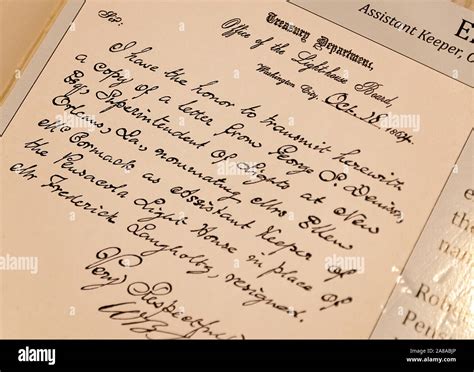 Treasury Department,
Office of the Lighthouse Board,
Washington City, Oct.
Sir:
I have the honor to transmit herewith
a copy of a letter from George S. Denison,
Esq, Superintendent of Lights at New
Orleans, La, nominating Mrs Ellen
McCormack as Assistant Keeper of
the Pensacola Light House in place of
Mr. Frederick Langholtz, resigned.
Very Respectfully
Assistant Keeper,
alamy
alamy
alamy
alamy
alamy
www.alamy.com
Image ID: 2A8ABJP